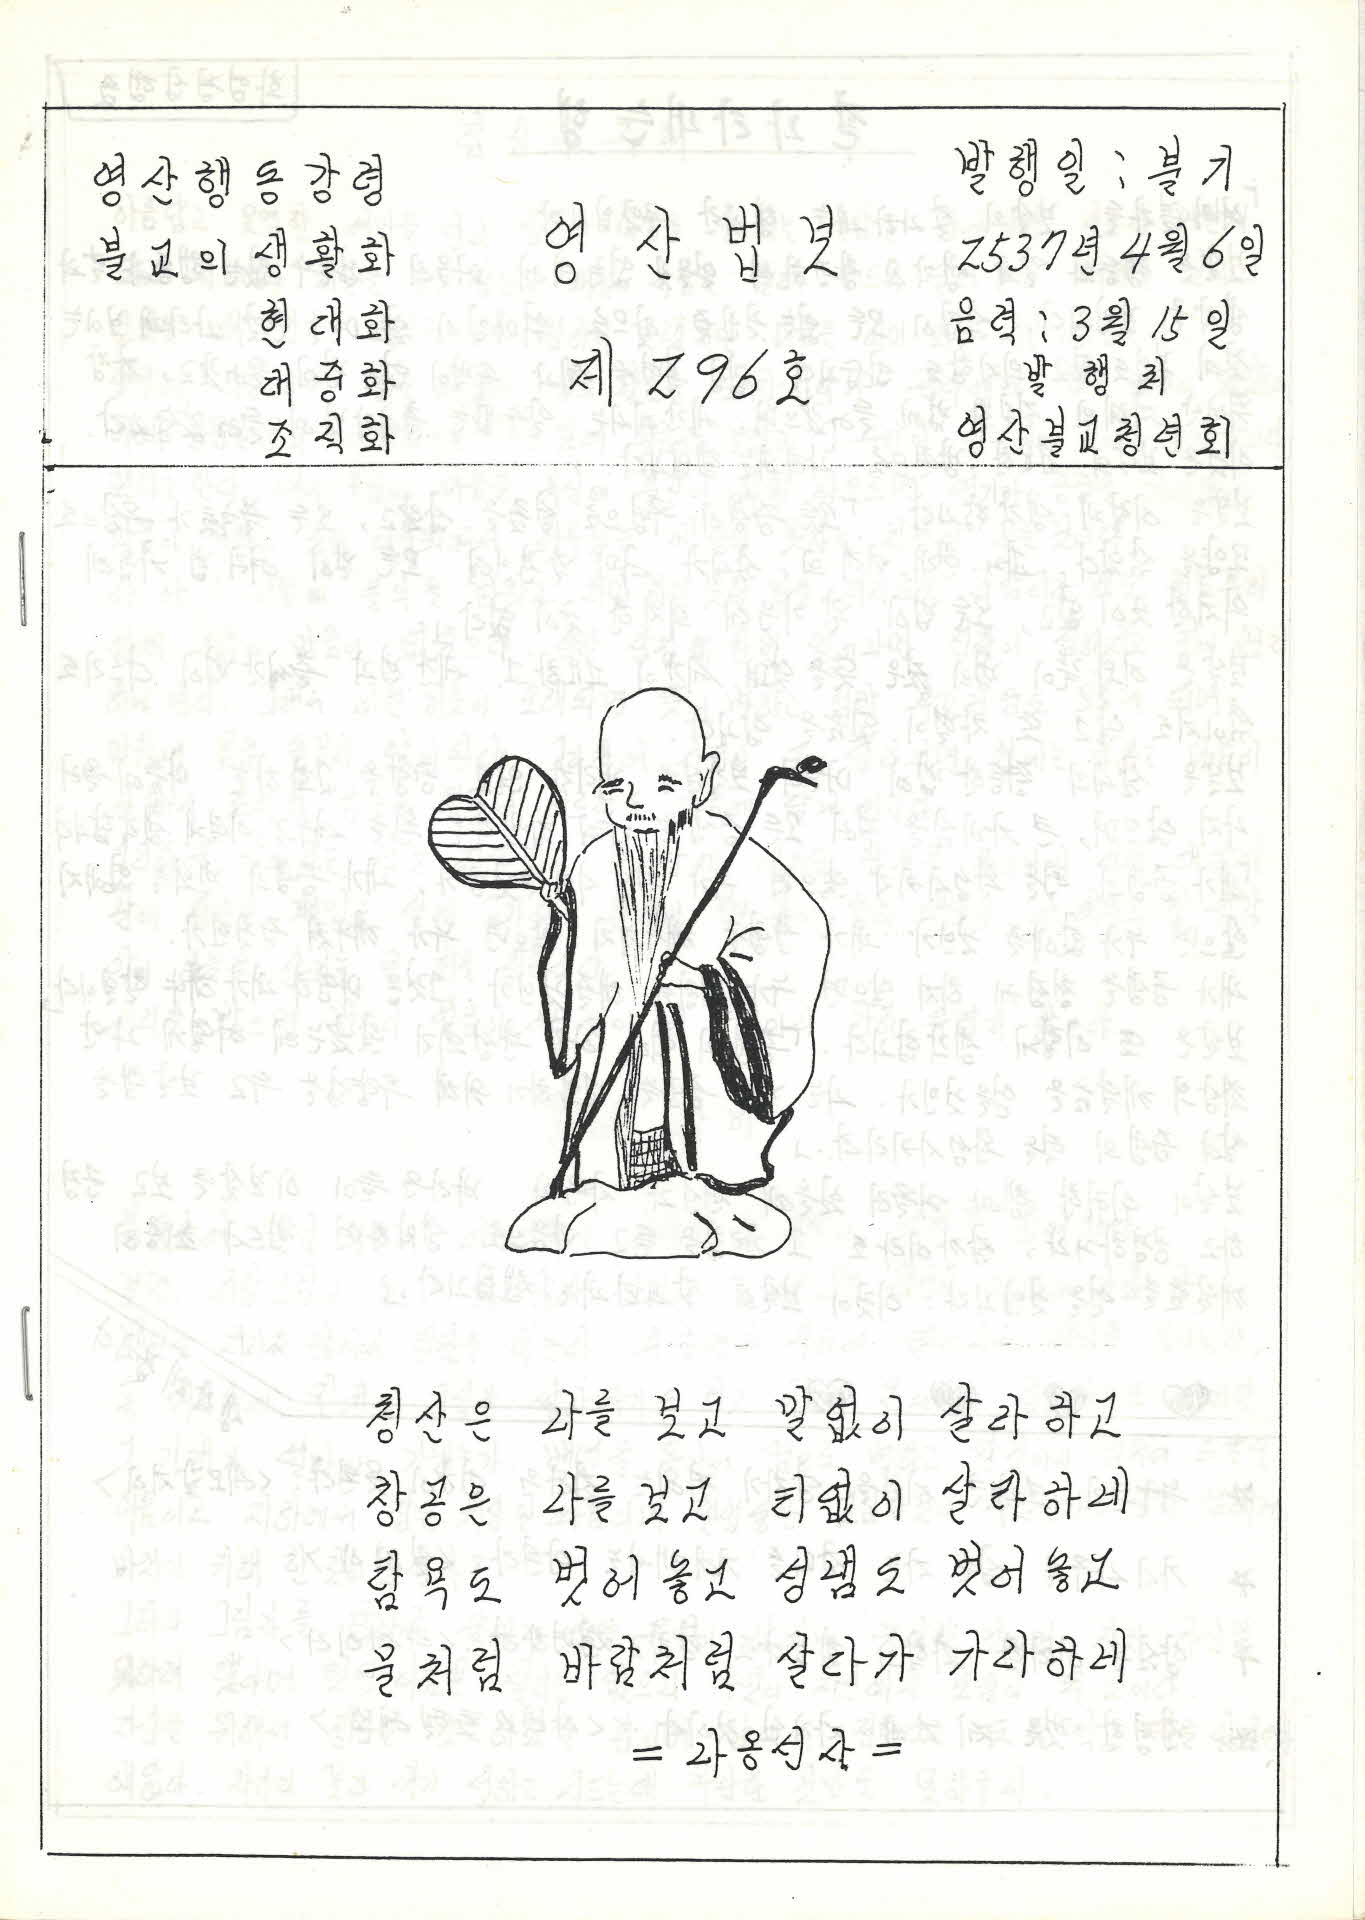 영산행동강령
불교의 생활화
현대화
대중화
조직화
영산법보
제 296호
발행일 : 불기
2537년 4월 6일
음력 : 3월 15일
발행처
영산불교청년회
청산은 나를 보고 말없이 살라하고
창공은 나를 보고 티없이 살라하네
탐욕도 벗어놓고 성냄도 벗어놓고
물처럼 바람처럼 살다가 가라하네
= 나옹선사 =